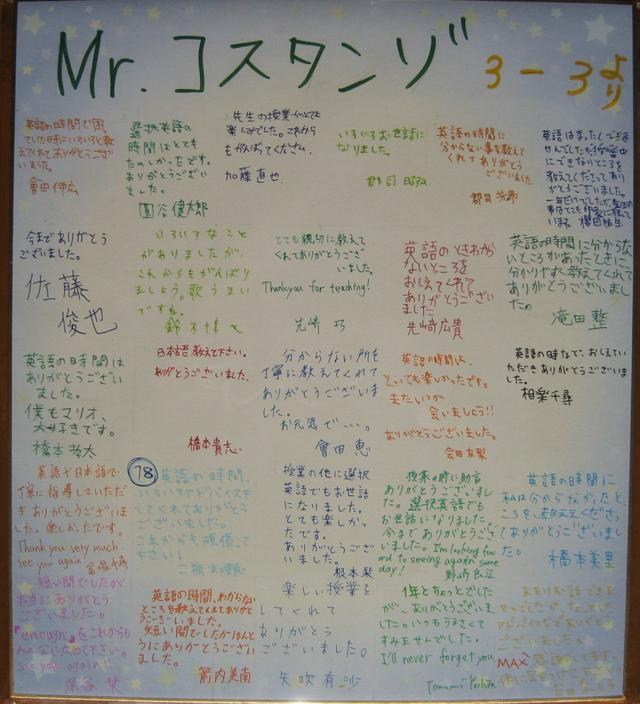 Mr. コスタンゾ
3-3より
英語の時間で困っ
ていた時にいろいろと教
えてくれてありがとうござ
いました。
會田伸広
選択英語の
時間はとても
たのしかったです。
ありがとうござい
ました。
圓谷健太郎
先生の授業
楽しみでした。これから
もがんばってください。
加藤直也
いろいろお世話に
なりました。
郡司
英語の時間に
分からない事を教えて
くれてありがとう
ございました
郡司
英語はまったくでき
ませんでしたが授業中
にできないところを
教えてくださってあり
がとうございました。
今までありがとう
ございました。
佐藤
俊也
いろいろなこと
がありましたが、
これからもがんばり
ましょう。歌うまい
ですね。
鈴木
とても親切に教えて
くれてありがとうござい
ました。
Thank you for teaching!
先崎 巧
英語のときわから
ないところを
おしえてくれて
ありがとうござい
ました
先崎広貴
英語の時間に分からな
いところがあったときに
分かりやすく教えてくれて
ありがとうございまし
た。
滝田 整
英語の時間は
ありがとうござい
ました。
僕もマリオ、
大好きです。
橋本
日本語教えて下さい。
ありがとうございました。
橋本貴志
分からない所を
丁寧に教えてくれて
ありがとうございま
した。
お元気で…。
會田 恵
英語の時間は、
とっても楽しかったです。
またいつか
会いましょう!!
ありがとうございました。
会田友梨
英語の時など、おしえてい
ただきありがとうございまし
た。
相楽千尋
英語や日本語で
丁寧に指導していただ
きありがとうございまし
た。楽しかったです。
Thank you very much.
See you again.
78
英語の時間、
いろいろアドバイスを
してくれてありがとう
ございました。
これからも頑張って
下さい!
授業の他に選択
英語でもお世話
になりました。
とても楽しかっ
たです。
ありがとうござ
いました。
根本 栞
授業の時に助言
ありがとうございまし
た。選択英語でも
お世話になりました。
今までありがとうござ
いました。I'm looking forw
ard to seeing again some
day!
英語の時間に
私は分からなかったと
ころを、教えてくださっ
てありがとうございまし
た。
橋本美里
短い間でしたが
本当にありがとう
ございました。
『enough』をこれからも
みんなに広めて下さい。
See you again!!
深谷 栞
英語の時間、わからな
いところを教えてくれてありがと
うございました。
短い間でしたがほんと
うにありがとうござい
ました。
箭内美南
楽しい授業を
してくれて
ありがとう
ございました。
矢吹有沙
1年とちょっとでした
が、ありがとうございま
した。いつもうるさくて
すみませんでした。
I'll never forget you
MAX